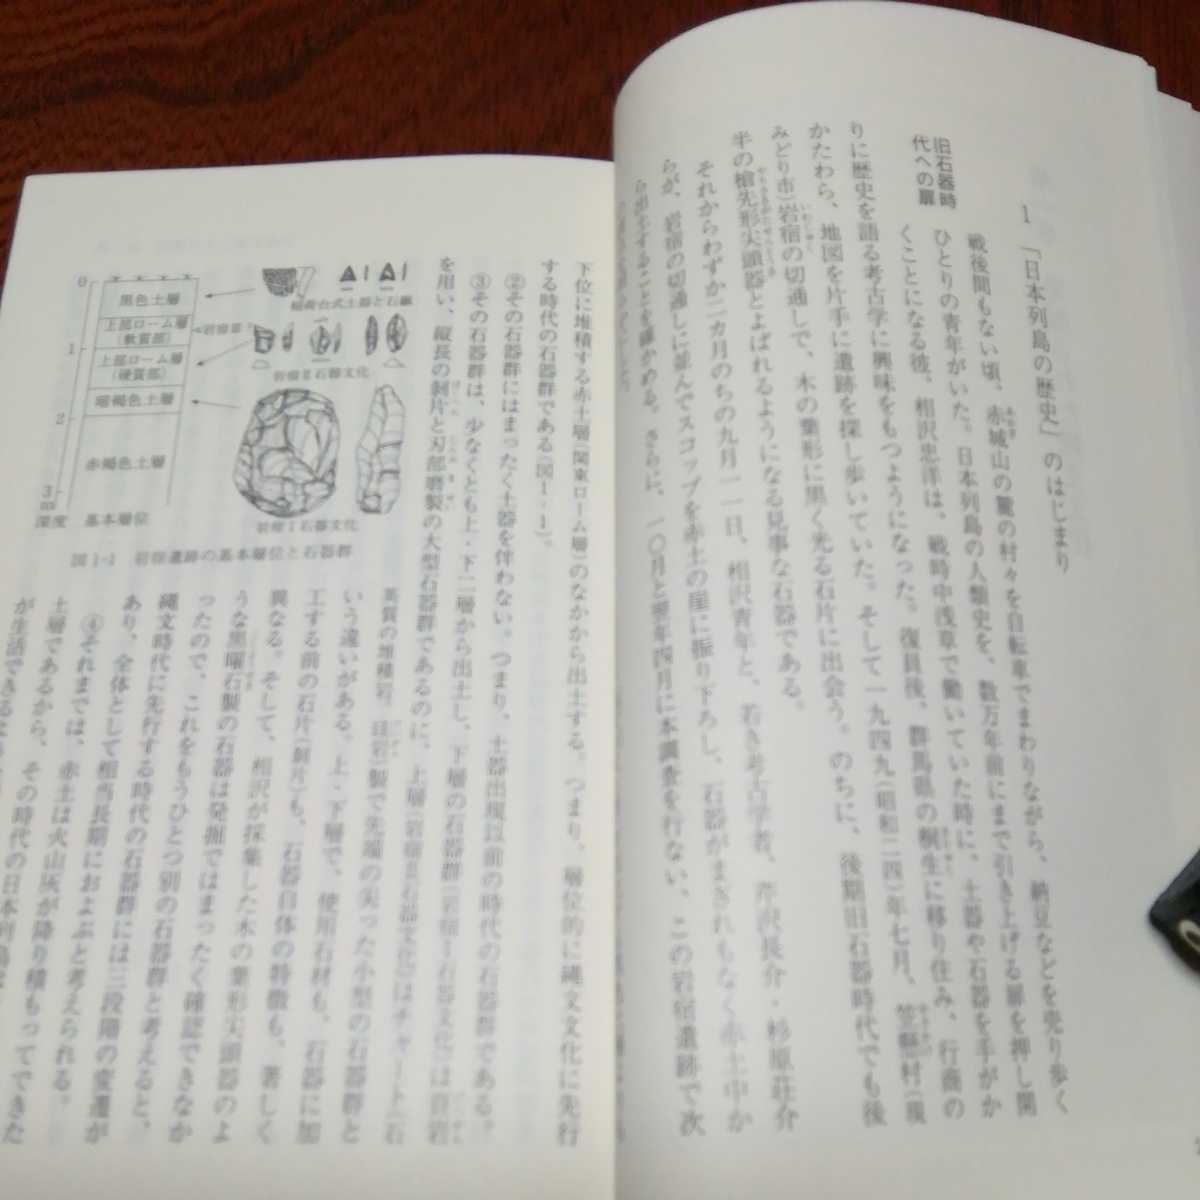 1 「日本列島の歴史」のはじまり
旧石器時
代への扉
戦後間もない頃、赤城山の麓の村々を自転車でまわりながら、納豆などを売り歩く
ひとりの青年がいた。日本列島の人類史を、数万年前にまで引き上げる扉を押し開
くことになる彼、相沢忠洋は、戦時中浅草で働いていた時に、土器や石器を手がか
りに歴史を語る考古学に興味をもつようになった。復員後、群馬県の桐生に移り住み、行商の
かたわら、地図を片手に遺跡を探し歩いていた。そして一九四九(昭和二四)年七月、笠懸村(現
みどり市)岩宿の切通しで、木の葉形に黒く光る石片に出会う。のちに、後期旧石器時代でも後
半の槍先形尖頭器とよばれるようになる見事な石器である。
それからわずか二カ月のちの九月一一日、相沢青年と、若き考古学者、芹沢長介・杉原荘介
らが、岩宿の切通しに並んでスコップを赤土の崖に振り下ろし、石器がまぎれもなく赤土中か
ら出土することを確かめる。さらに、一〇月と翌年四月に本調査を行ない、この岩宿遺跡で次
下位に堆積する赤土層(関東ローム層)のなかから出土する。つまり、層位的に縄文文化に先行
する時代の石器群である(図1-1)。
②その石器群にはまったく土器を伴わない。つまり、土器出現以前の時代の石器群である。
③その石器群は、少なくとも上・下二層から出土し、下層の石器群(岩宿Ⅰ石器文化)は頁岩
を用い、縦長の剝片と刃部磨製の大型石器群であるのに、上層(岩宿Ⅱ石器文化)はチャート(石
英質の堆積岩)、頁岩製で先端の尖った小型の石器群と
いう違いがある。上・下層で、使用石材も、石器に加
工する前の石片(剝片)も、石器自体の特徴も、著しく
異なる。そして、相沢が採集した木の葉形尖頭器のよ
うな黒曜石製の石器は発掘ではまったく確認できなか
ったので、これをもうひとつ別の石器群と考えると、
縄文時代に先行する時代の石器群には三段階の変遷が
あり、全体として相当長期におよぶと考えられる。
④それまでは、赤土は火山灰が降り積もってできた
土層であるから、その時代の日本列島は
が生活できるな
0
1
2
3
m
深度
基本層位
黒色土層
上部ローム層
(軟質部)
上部ローム層
(硬質部)
暗褐色土層
赤褐色土層
稲荷台式土器と石鏃
岩宿Ⅲ
岩宿Ⅱ石器文化
岩宿Ⅰ石器文化
図1-1 岩宿遺跡の基本層位と石器群